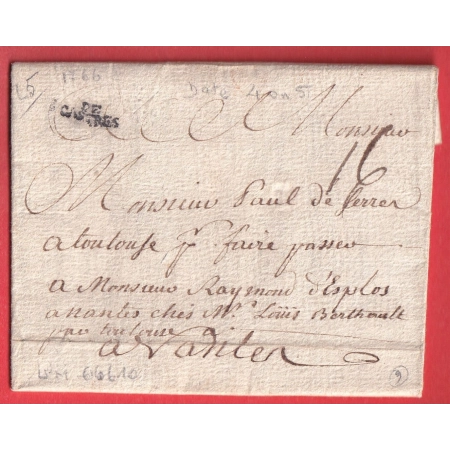 1766
Date 4 ou 5
DE
CASTRES
Monsieur
16
Monsieur Paul de Ferrer
a toulouse pr faire passer
a Monsieur Raymond d'Esplos
a nantes chés Mr. Louïs Berthault
par toulouse
a Nantes